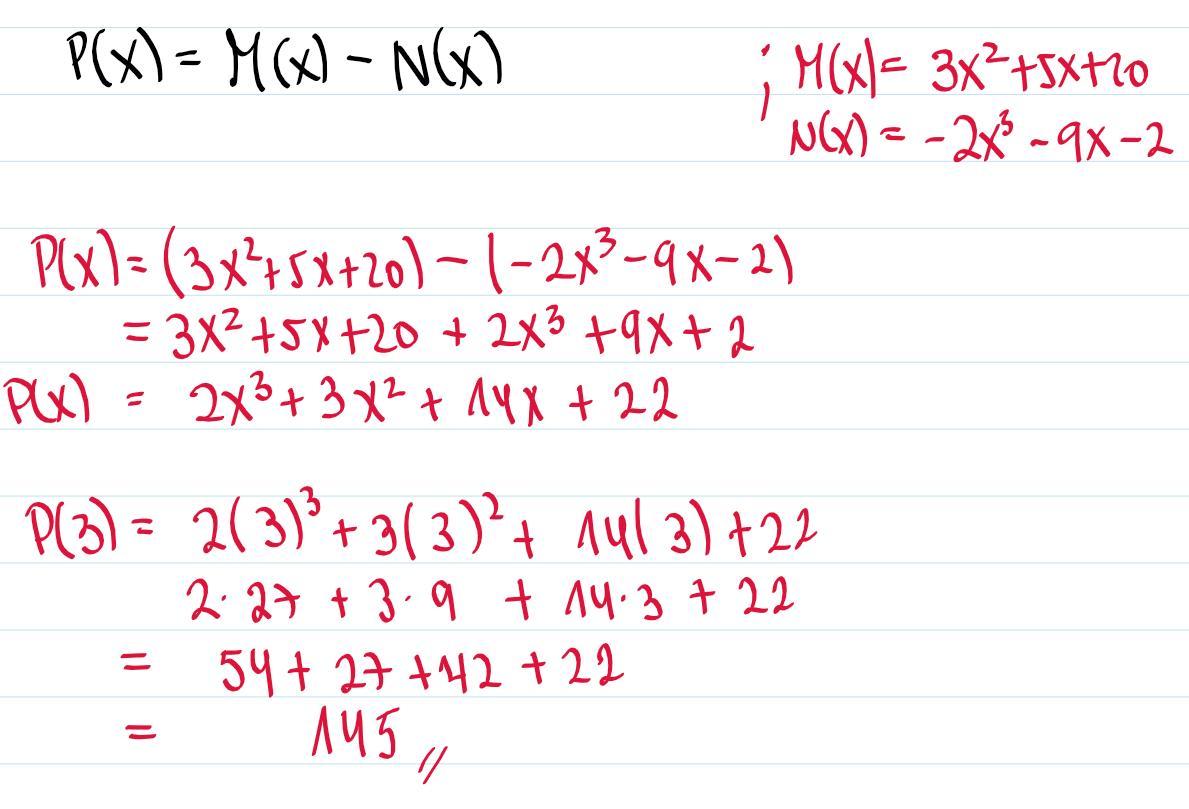 P(x) = M(x) - N(x)
; M(x) = 3x²+5x+20
N(x) = -2x³ -9x-2
P(x) = (3x²+5x+20) - (-2x³-9x-2)
= 3x²+5x+20 + 2x³ +9x+ 2
P(x) = 2x³+ 3x² + 14x + 22
P(3) = 2(3)³ + 3(3)² + 14(3) +22
2·27 + 3·9 + 14·3 + 22
= 54+ 27 +42 +22
= 145 //